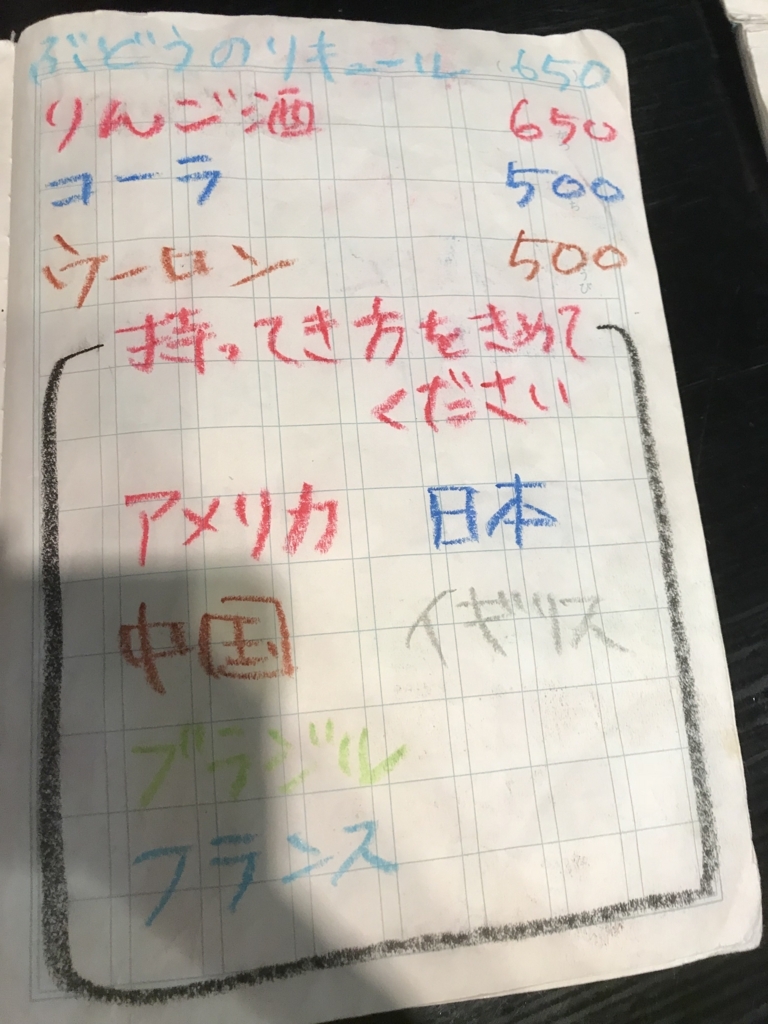 ぶどうのリキュール 650
りんご酒 650
コーラ 500
ウーロン 500
持ってき方をきめて
ください
アメリカ 日本
中国 イギリス
ブラジル
フランス